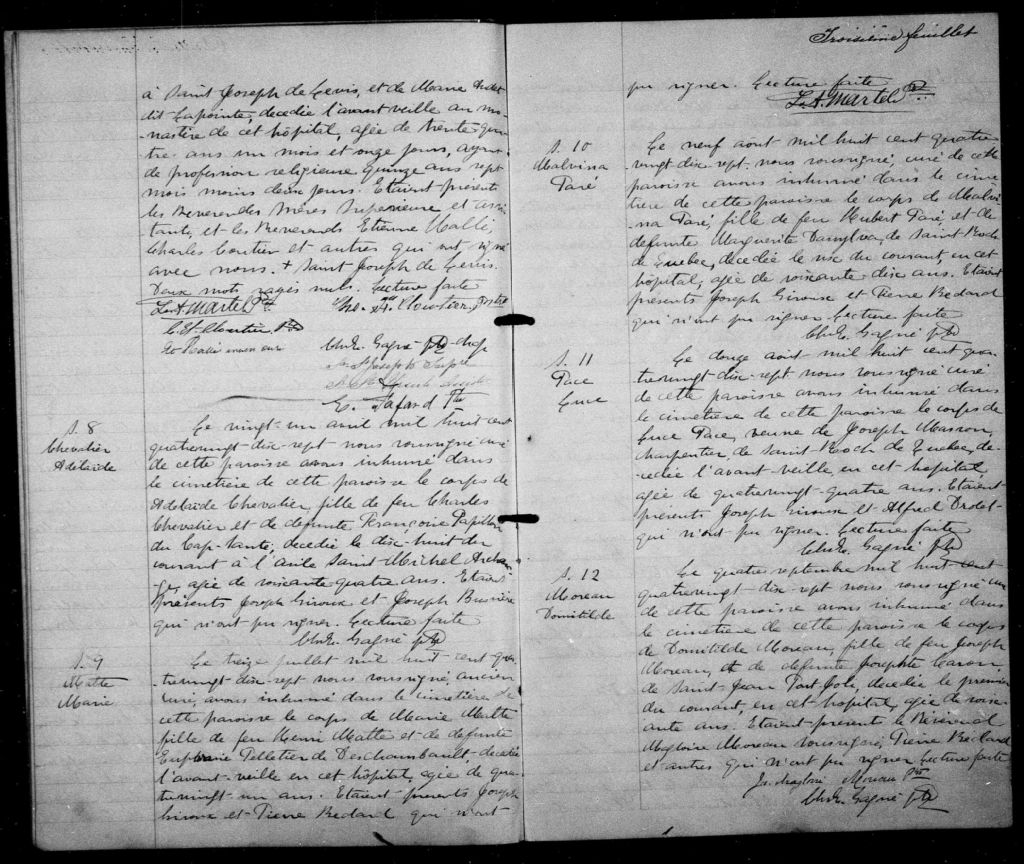 à Saint Joseph de Levis, et de Marie Audet
dit Lapointe, decedée l'avant veille au mo-
nastère de cet hôpital, agée de trente qua-
tres ans un mois et onze jours, ayant
de profession religieuse quinze ans sept
mois moins deux jours. Etaient présents
les Reverendes Mères Superieure et assis-
tante, et les Reverends Etienne Hallé,
Charles Cloutier et autres qui ont signé
avec nous. + Saint Joseph de Levis.
Deux mots rayés nuls. Lecture faite
L. A. Martel Ptre
Cloutier, Ptre
C. Et. Cloutier Ptre
Chs. Gagné Ptre chap
St Joseph Supre
E. Tafard Ptre
S. 8
Chevalier
Adelaide
Le vingt-un avril mil huit cent
quatrevingt-dix-sept nous soussigné curé
de cette paroisse avons inhumé dans
le cimetière de cette paroisse le corps de
Adelaide Chevalier, fille de feu Charles
Chevalier et de defunte Françoise Papillon
du Cap-Santé, decedée le dix-huit du
courant à l'asile Saint Michel Archan-
ge, agée de soixante quatre ans. Etaient
présents Joseph Giroux et Joseph Bussière
qui n'ont pu signer. Lecture faite
Chs. Gagné Ptre
S. 9
Matte
Marie
Le treize juillet mil huit cent qua-
trevingt-dix-sept nous soussigné, ancien
curé, avons inhumé dans le cimetière de
cette paroisse le corps de Marie Matte
fille de feu Henri Matte et de defunte
Euphrasie Pelletier de Deschambault, decedée
l'avant-veille en cet hôpital, agée de qua-
trevingt-un ans. Etaient presents Joseph
Giroux et Pierre Bedard qui n'ont
Troisième feuillet
pu signer. Lecture faite
L. A. Martel Ptre
S. 10
Malvina
Paré
Le neuf aout mil huit cent quatre
vingt dix-sept nous soussigné, curé de cette
paroisse avons inhumé dans le cime
tière de cette paroisse le corps de Malvi-
na Paré, fille de feu Hubert Paré, et de
defunte Marguerite Damylva, de Saint Roch
de Quebec, decedée le six du courant, en cet
hôpital, agée de soixante-dix ans. Etaient
présents Joseph Giroux et Pierre Bedard
qui n'ont pu signer Lecture faite
Chs. Gagné Ptre
S. 11
Pace
Luce
Le douze août mil huit cent qua-
trevingt dix-sept nous soussigné curé
de cette paroisse avons inhumé dans
le cimetière de cette paroisse le corps de
Luce Pace, veuve de Joseph Masson,
charpentier de Saint Roch de Quebec, de-
cedée l'avant-veille en cet hopital
agée de quatrevingt-quatre ans. Etaient
présents Joseph Giroux et Alfred Drolet
qui n'ont pu signer. Lecture faite
Chs. Gagné Ptre
S. 12
Moreau
Domitilde
Le quatre septembre mil huit cent
quatrevingt-dix-sept nous soussigné curé
de cette paroisse avons inhumé dans
le cimetière de cette paroisse le corps
de Domitilde Moreau, fille de feu Joseph
Moreau, et de defunte Josephte Caron,
de Saint-Jean Port Joli, decedée le premier
du courant, en cet hôpital, agée de soix-
ante ans. Etaient présents le Réverend
Magloire Moreau soussigné, Pierre Bedard
et autres qui n'ont pu signer Lecture faite
Js. Magloire Moreau Ptre
Chs. Gagné Ptre